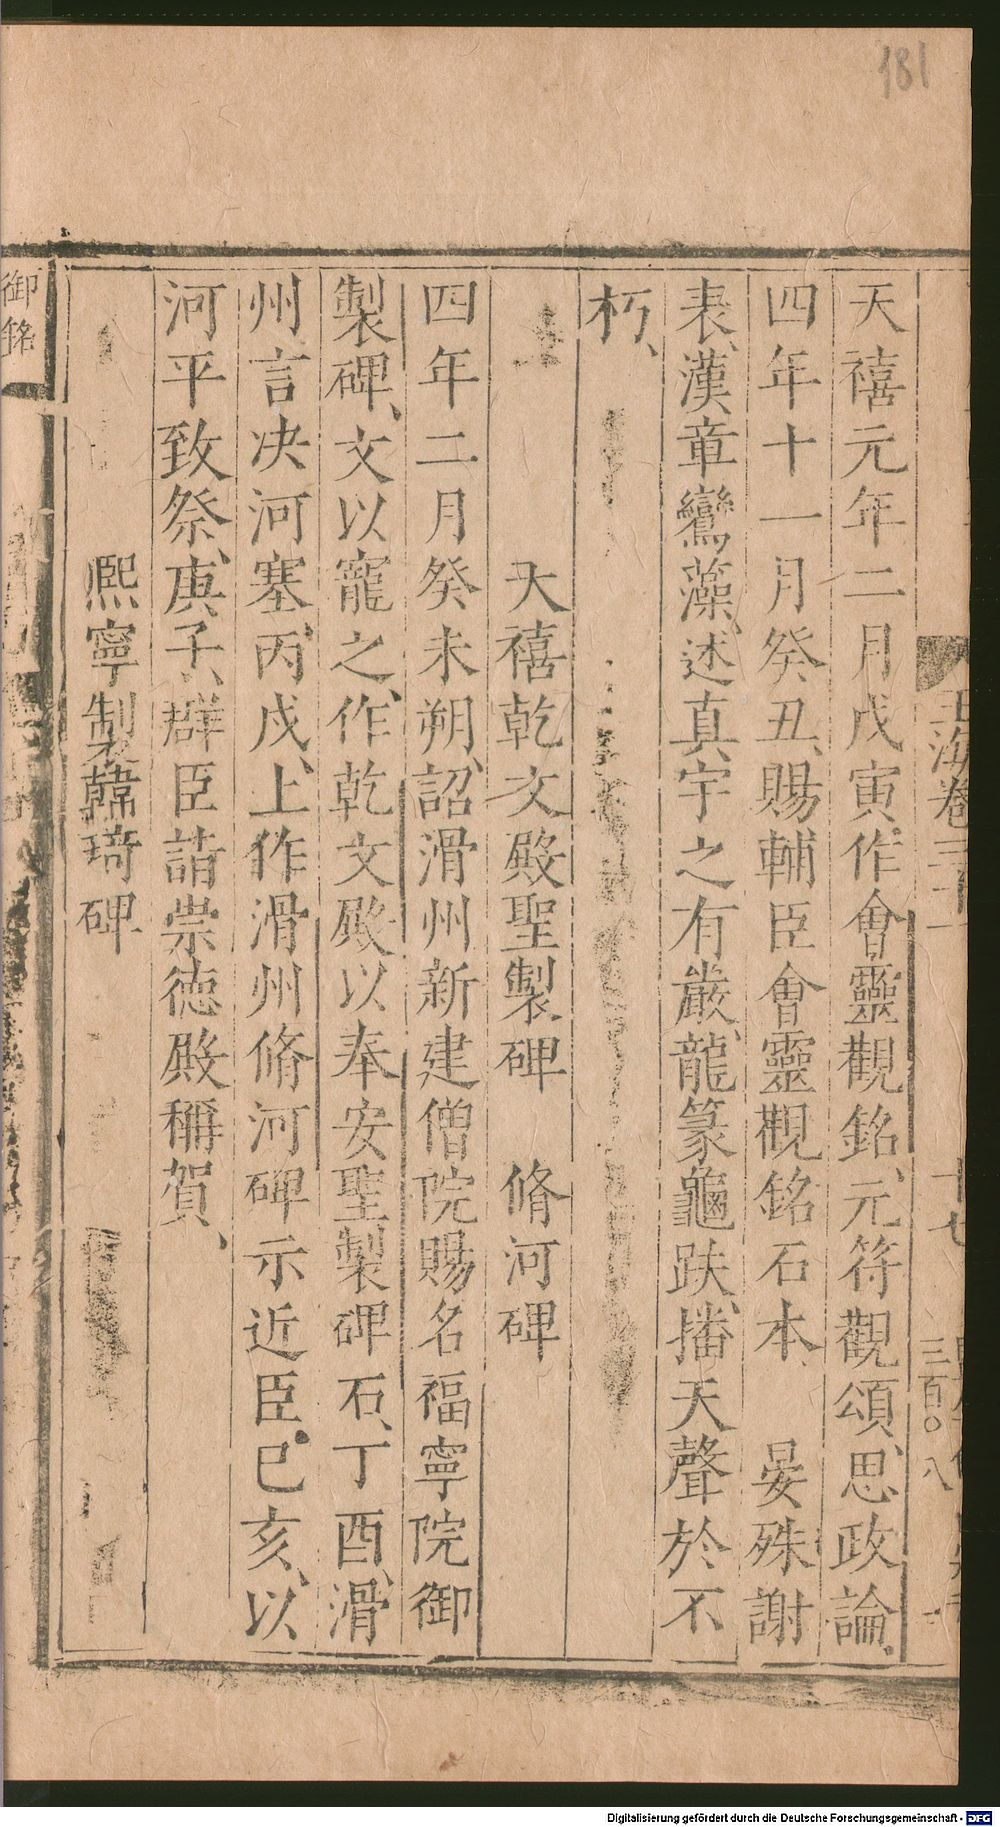 181
玉海卷三十一
十七
三百〇八
天禧元年二月戊寅作會靈觀銘、元符觀頌、思政論、
四年十一月癸丑、賜輔臣會靈觀銘石本 晏殊謝
表、漢章鸞藻、述真宇之有嚴、龍篆龜趺、播天聲於不
朽、
天禧乾文殿聖製碑 脩河碑
四年二月癸未朔、詔滑州新建僧院賜名福寧院御
製碑、文以寵之、作乾文殿以奉安聖製碑石、丁酉、滑
州言决河塞、丙戌、上作滑州脩河碑示近臣、己亥、以
河平致祭、庚子、群臣詣崇德殿稱賀、
熙寧製韓琦碑
御銘
Digitalisierung gefördert durch die Deutsche Forschungsgemeinschaft - DFG